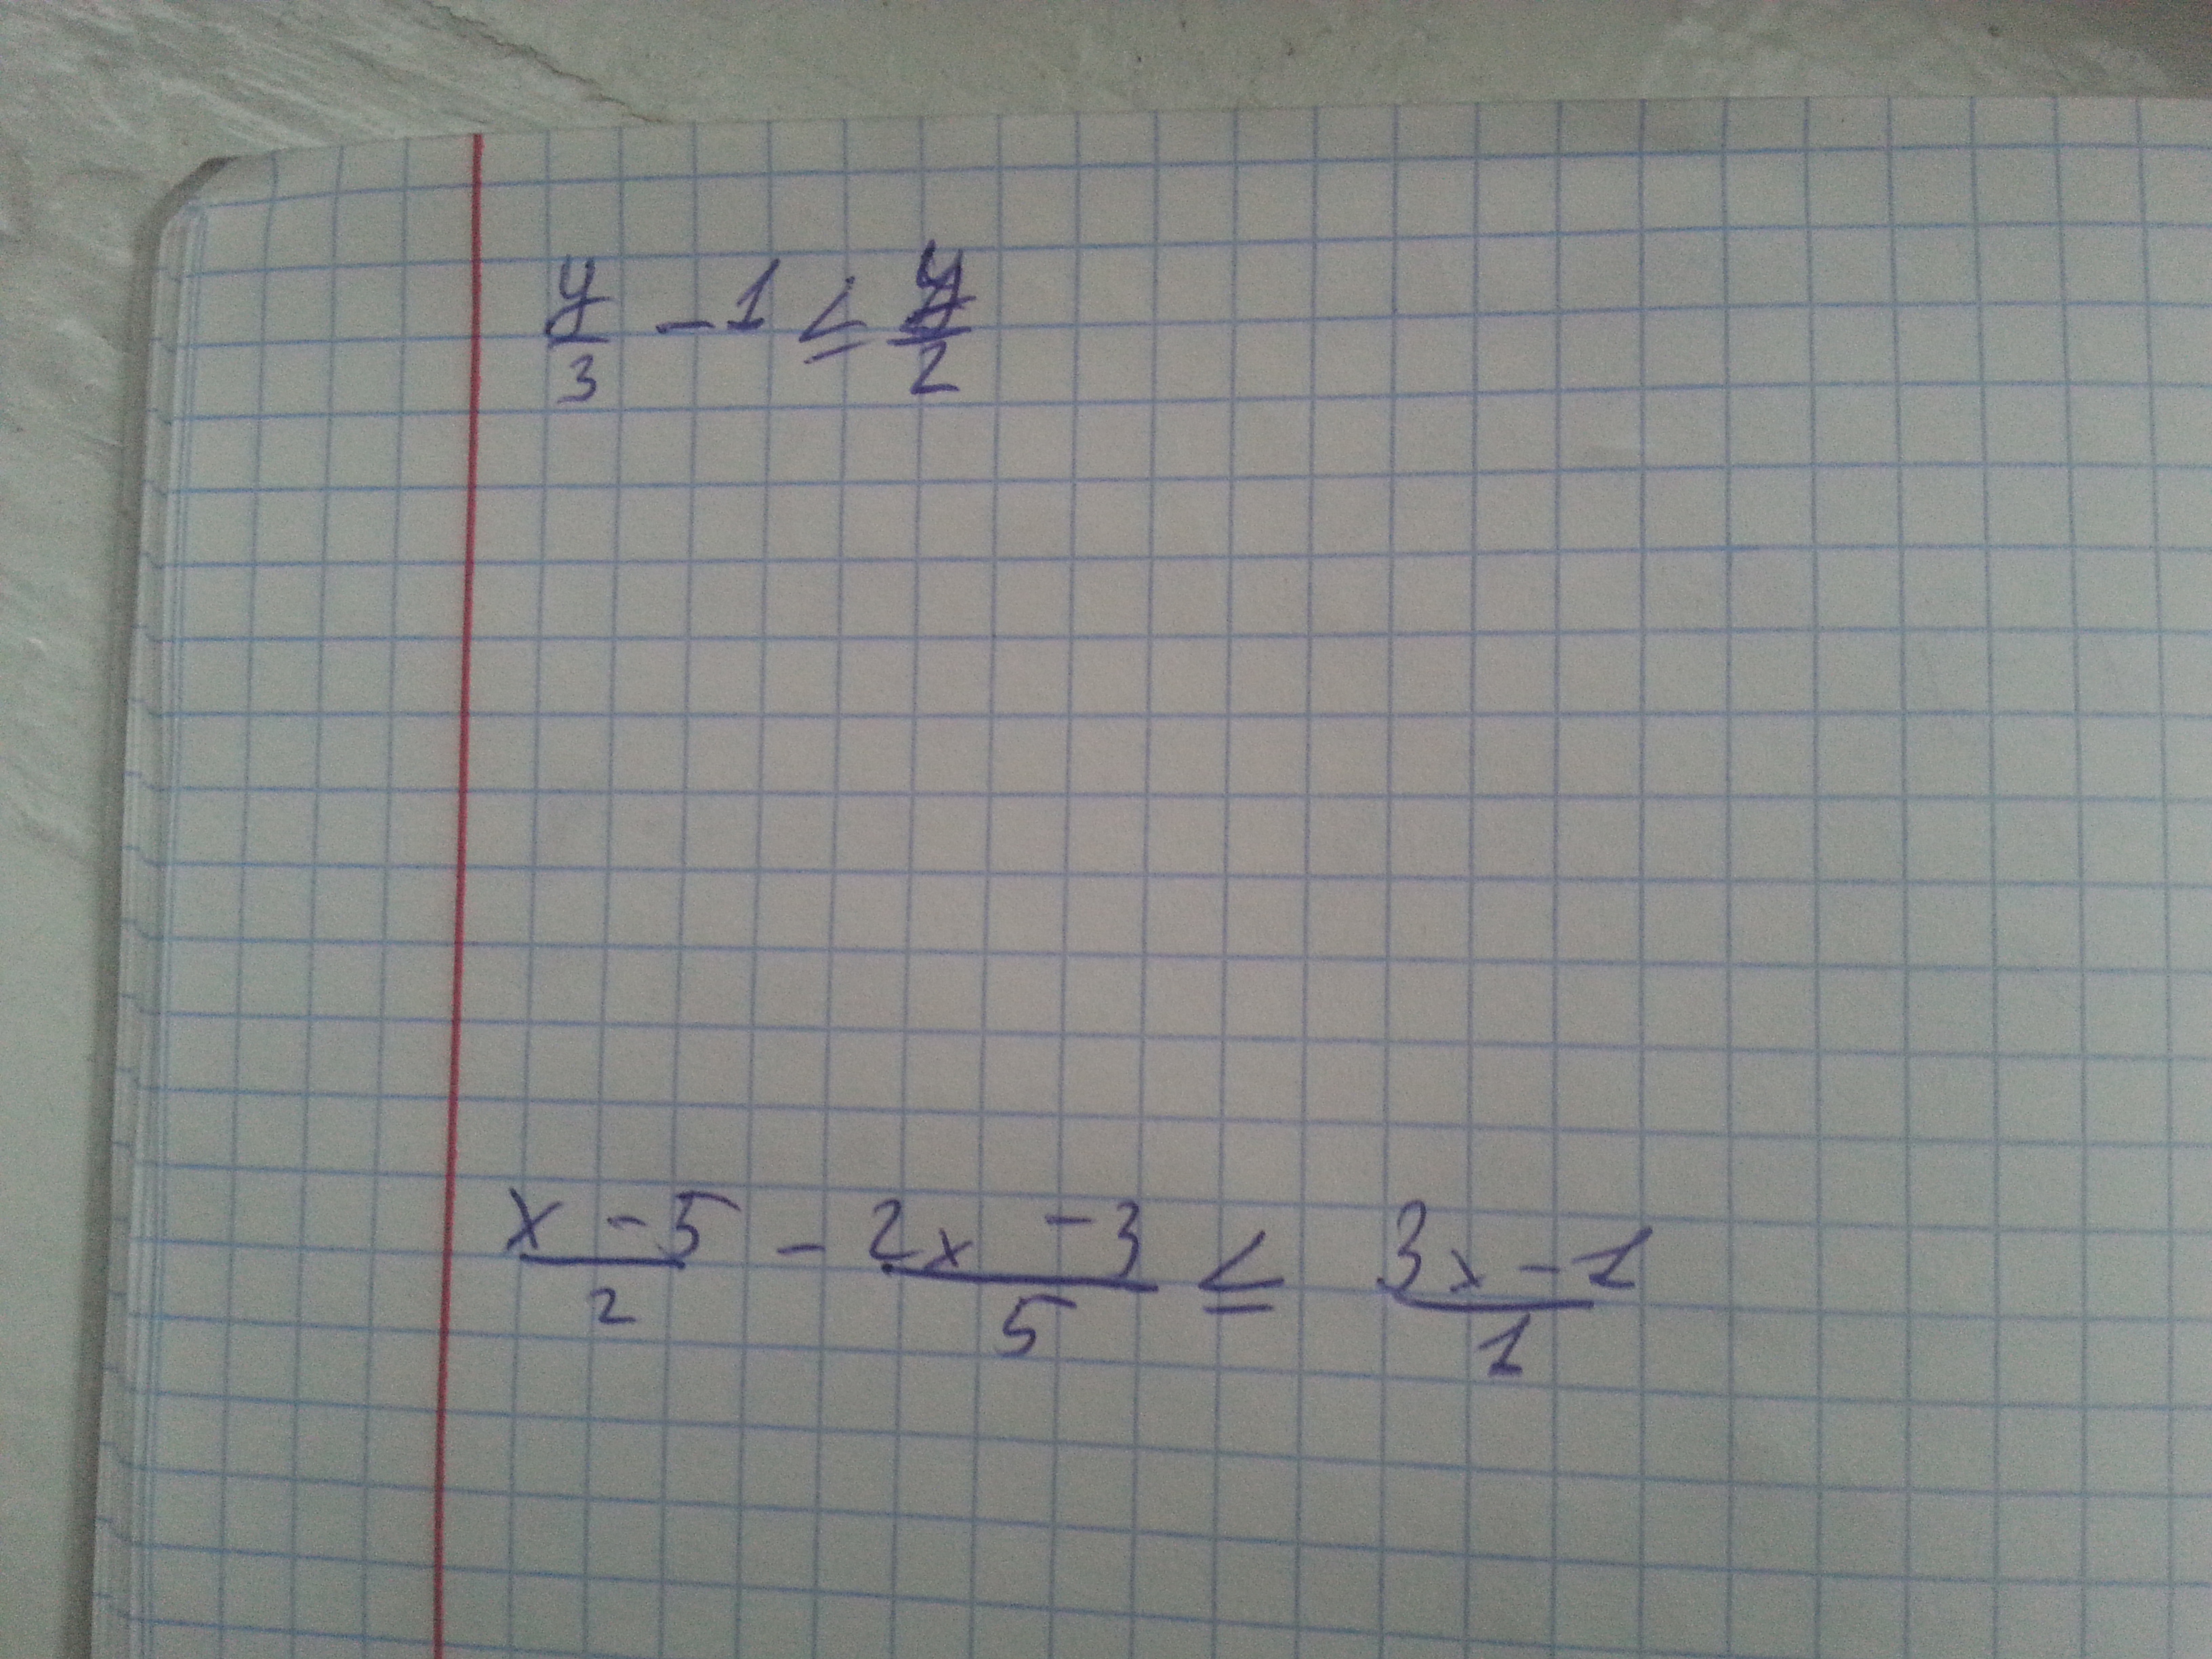 y/3 - 1 ≤ y/2
(x - 5)/2 - (2x - 3)/5 ≤ (3x - 1)/1